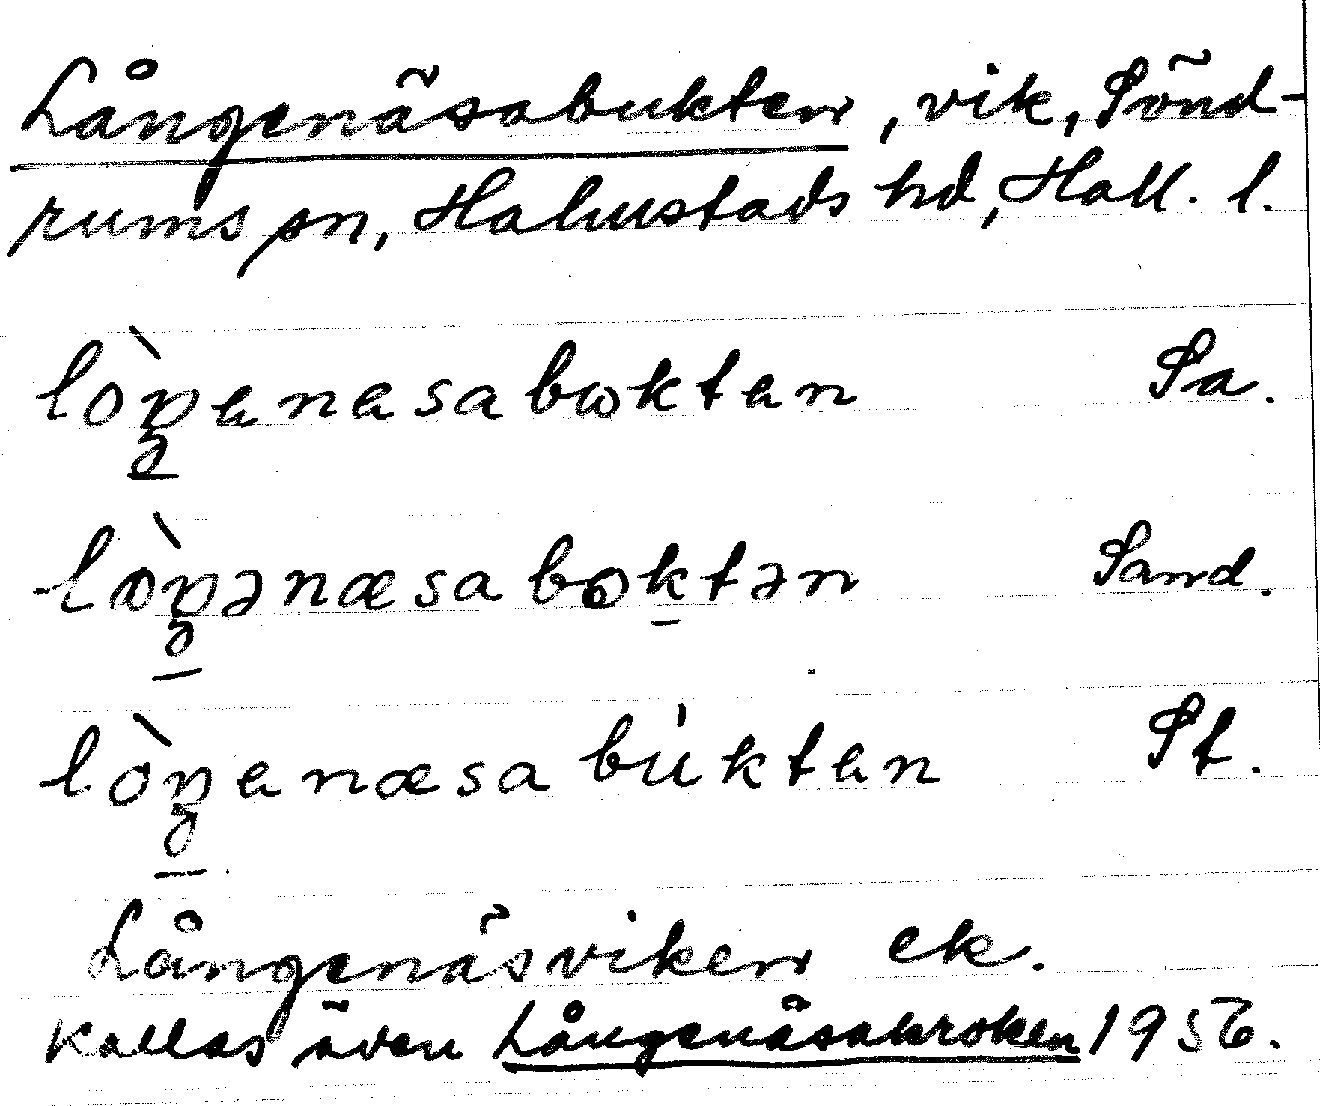 Långenäsabukten, vik, Sönd-
rums sn, Halmstads hd, Hall. l.
lòŋenesabωkten Sa.
lòŋənæsaboktən Sand.
lòŋenæsabúkten St.
Långenäsviken ek.
Kallas även Långenäsakroken 1956.